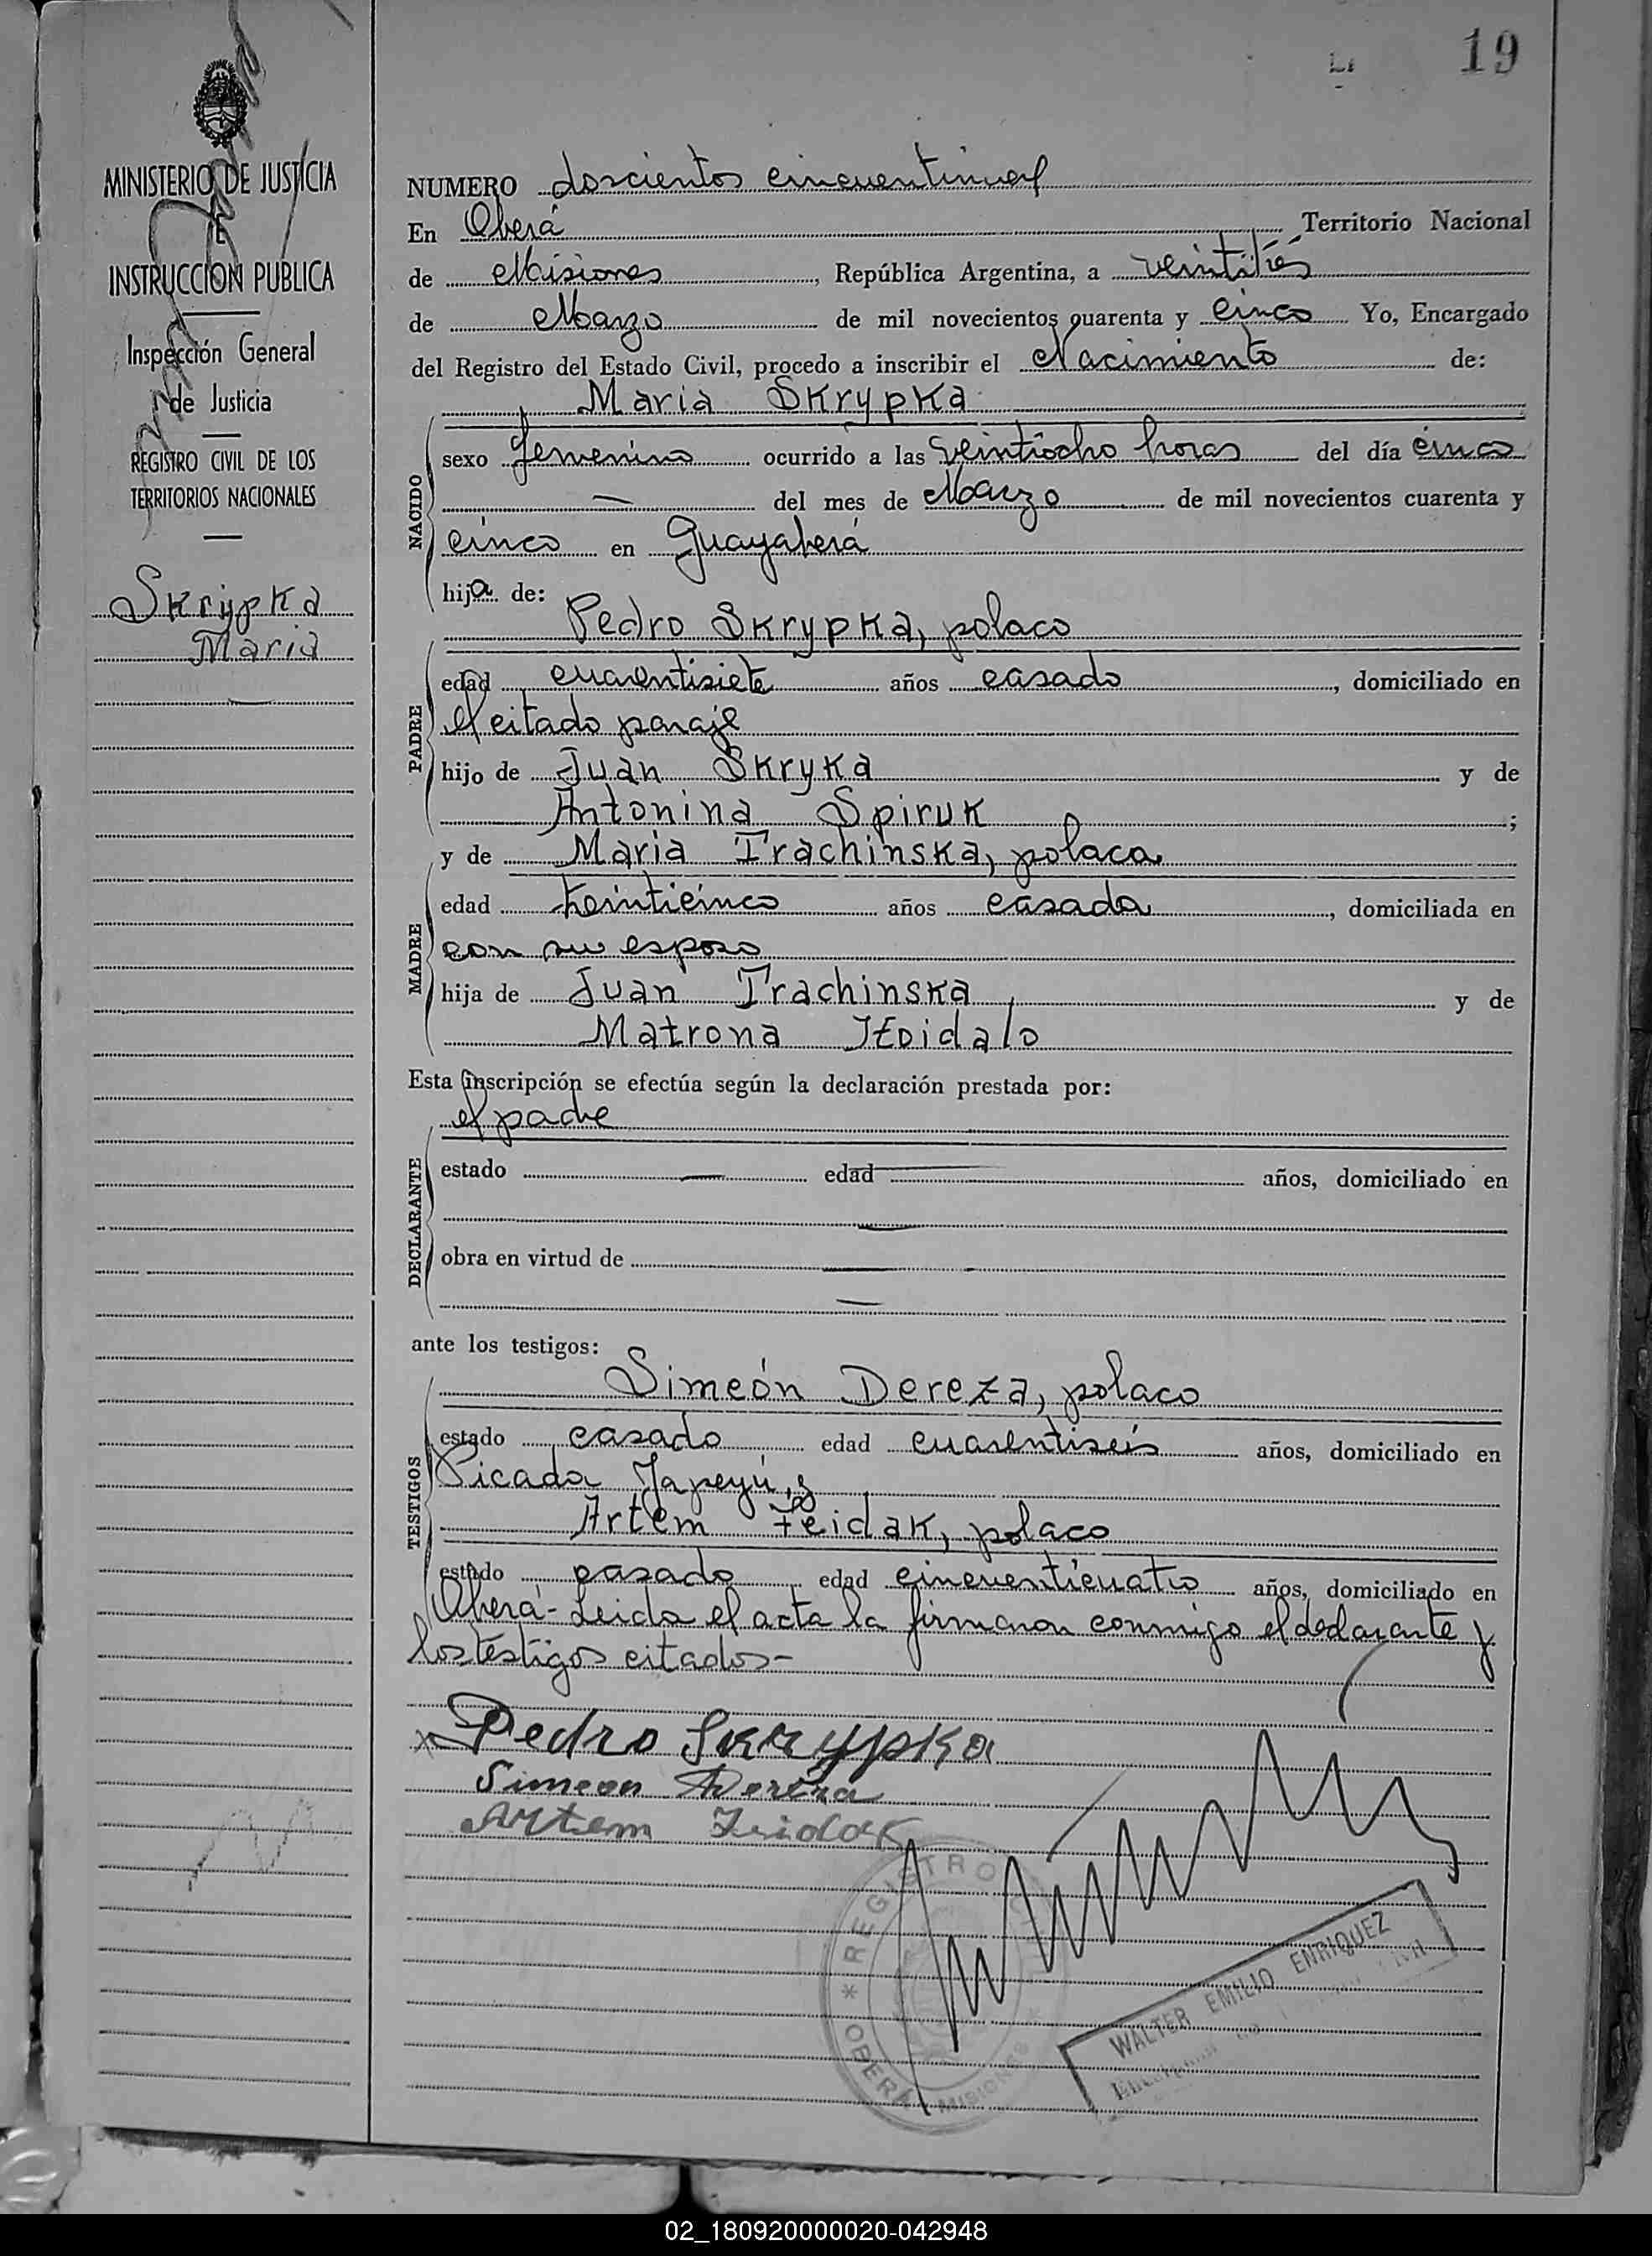 19
MINISTERIO DE JUSTICIA
E
INSTRUCCION PUBLICA
Inspección General
de Justicia
REGISTRO CIVIL DE LOS
TERRITORIOS NACIONALES
Skrypka
Maria
NUMERO doscientos cincuentinueve
En Oberá Territorio Nacional
de Misiones, República Argentina, a veintitrés
de Marzo de mil novecientos cuarenta y cinco Yo, Encargado
del Registro del Estado Civil, procedo a inscribir el Nacimiento de:
Maria Skrypka
NACIDO
sexo femenino ocurrido a las veintiocho horas del día cinco
— del mes de Marzo de mil novecientos cuarenta y
cinco en Guayaberá
hija de:
Pedro Skrypka, polaco
PADRE
edad cuarentisiete años casado, domiciliado en
el citado paraje
hijo de Juan Skryka y de
Antonina Spiruk;
y de Maria Trachinska, polaca
MADRE
edad treinticinco años casada, domiciliada en
con su esposo
hija de Juan Trachinska y de
Matrona
Esta inscripción se efectúa según la declaración prestada por:
el padre
DECLARANTE
estado — edad — años, domiciliado en
—
obra en virtud de —
—
ante los testigos:
Simeón Dereza, polaco
TESTIGOS
estado casado edad cuarentiseis años, domiciliado en
Picada Yapeyú, y
Artem Feidak, polaco
estado casado edad cincuenticuatro años, domiciliado en
Oberá- Leida el acta la firmaron conmigo el declarante y
los testigos citados-
x Pedro Skrypka
Simeon Dereza
Artem
REGISTRO CIVIL
* OBERÁ MISIONES *
WALTER EMILIO ENRIQUEZ
02_180920000020-042948